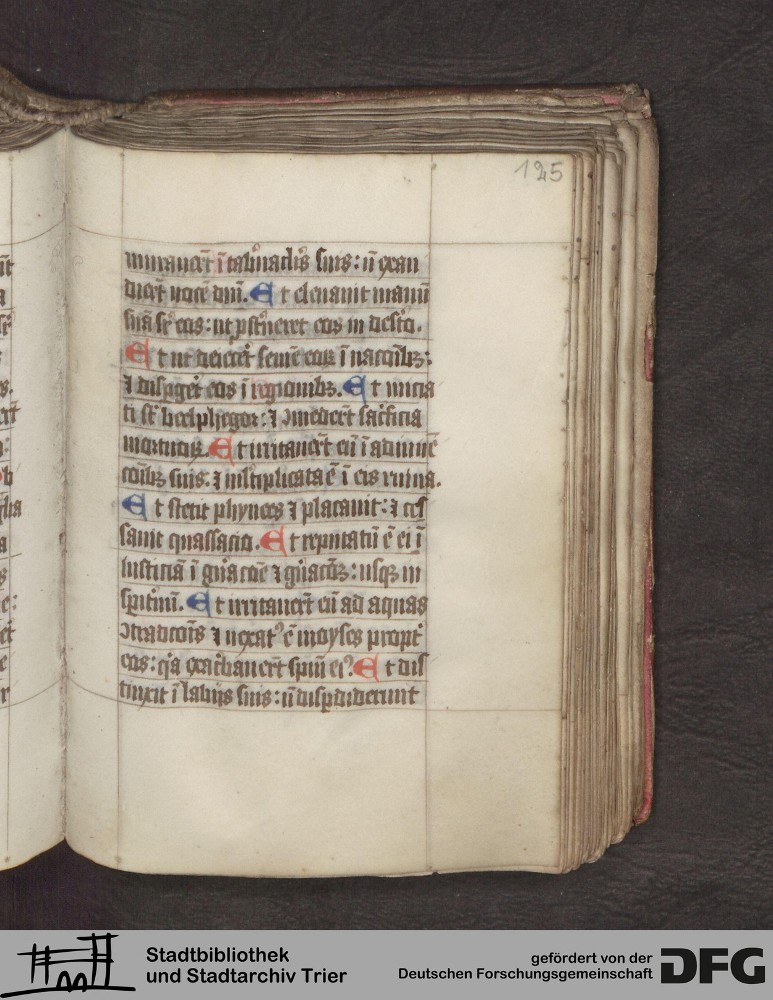 125
murauer̄t ī tab̓naclis suis: n̄ exau
dier̄t uocē dn̄i. Et eleuauit manū
suā sr̄ eos: ut ꝓst̓neret eos in dess̓to.
Et ut deiceret semē eoꝝ ī nacōibꝫ:
⁊ disꝑget̄ eos ī regionibꝫ. Et inicia
ti st̄ beelphegor: ⁊ ↄmeder̄t sac̓ficia
mortuoꝝ. Et irritauer̄t eū ī adinuē
cōibꝫ suis: ⁊ ml̓tiplicata ē ī eis ruina.
Et stetit phynees ⁊ placauit: ⁊ ces
sauit quassacio. Et reputatū ē ei ī
iusticiā ī gn̓acōe ⁊ gn̓acōꝫ: usqꝫ in
spit̓nū. Et irritauer̄t eū ad aquas
ↄtradcōis ⁊ uexatꝰ ē moyses propt̓
eos: q̓a exac̓bauer̄t spm̄ eiꝰ. Et dis
tinxit ī labijs suis: n̄ disꝑdiderunt
Stadtbibliothek
und Stadtarchiv Trier
gefördert von der
Deutschen Forschungsgemeinschaft DFG